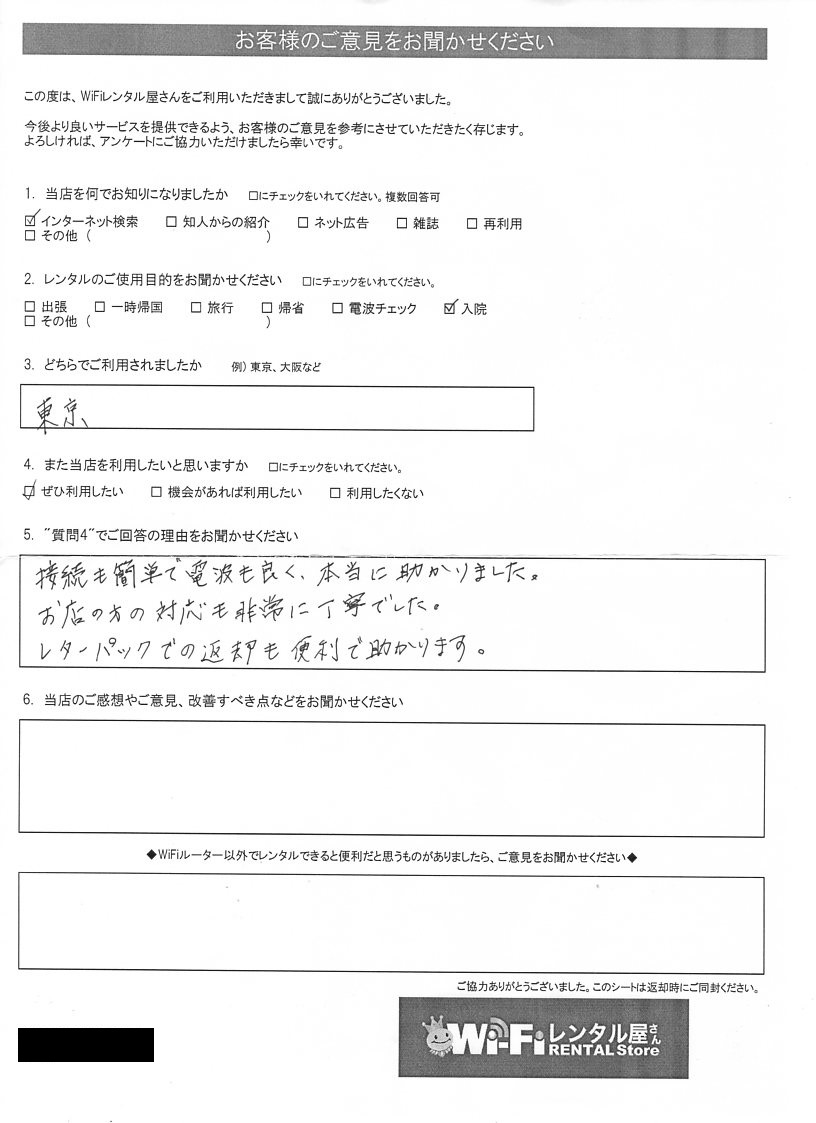 お客様のご意見をお聞かせください
この度は、WiFiレンタル屋さんをご利用いただきまして誠にありがとうございました。
今後より良いサービスを提供できるよう、お客様のご意見を参考にさせていただきたく存じます。
よろしければ、アンケートにご協力いただけましたら幸いです。
1. 当店を何でお知りになりましたか □にチェックをいれてください。複数回答可
☑インターネット検索 □ 知人からの紹介 □ ネット広告 □ 雑誌 □ 再利用
□ その他 ( )
2. レンタルのご使用目的をお聞かせください □にチェックをいれてください。
□ 出張 □ 一時帰国 □ 旅行 □ 帰省 □ 電波チェック ☑ 入院
□ その他 ( )
3. どちらでご利用されましたか 例) 東京、大阪など
東京
4. また当店を利用したいと思いますか □にチェックをいれてください。
☑ ぜひ利用したい □ 機会があれば利用したい □ 利用したくない
5. "質問4"でご回答の理由をお聞かせください
接続も簡単で電波も良く、本当に助かりました。
お店の方の対応も非常に丁寧でした。
レターパックでの返却も便利で助かります。
6. 当店のご感想やご意見、改善すべき点などをお聞かせください
◆WiFiルーター以外でレンタルできると便利だと思うものがありましたら、ご意見をお聞かせください◆
ご協力ありがとうございました。このシートは返却時にご同封ください。
Wi-Fiレンタル屋さん
RENTAL Store